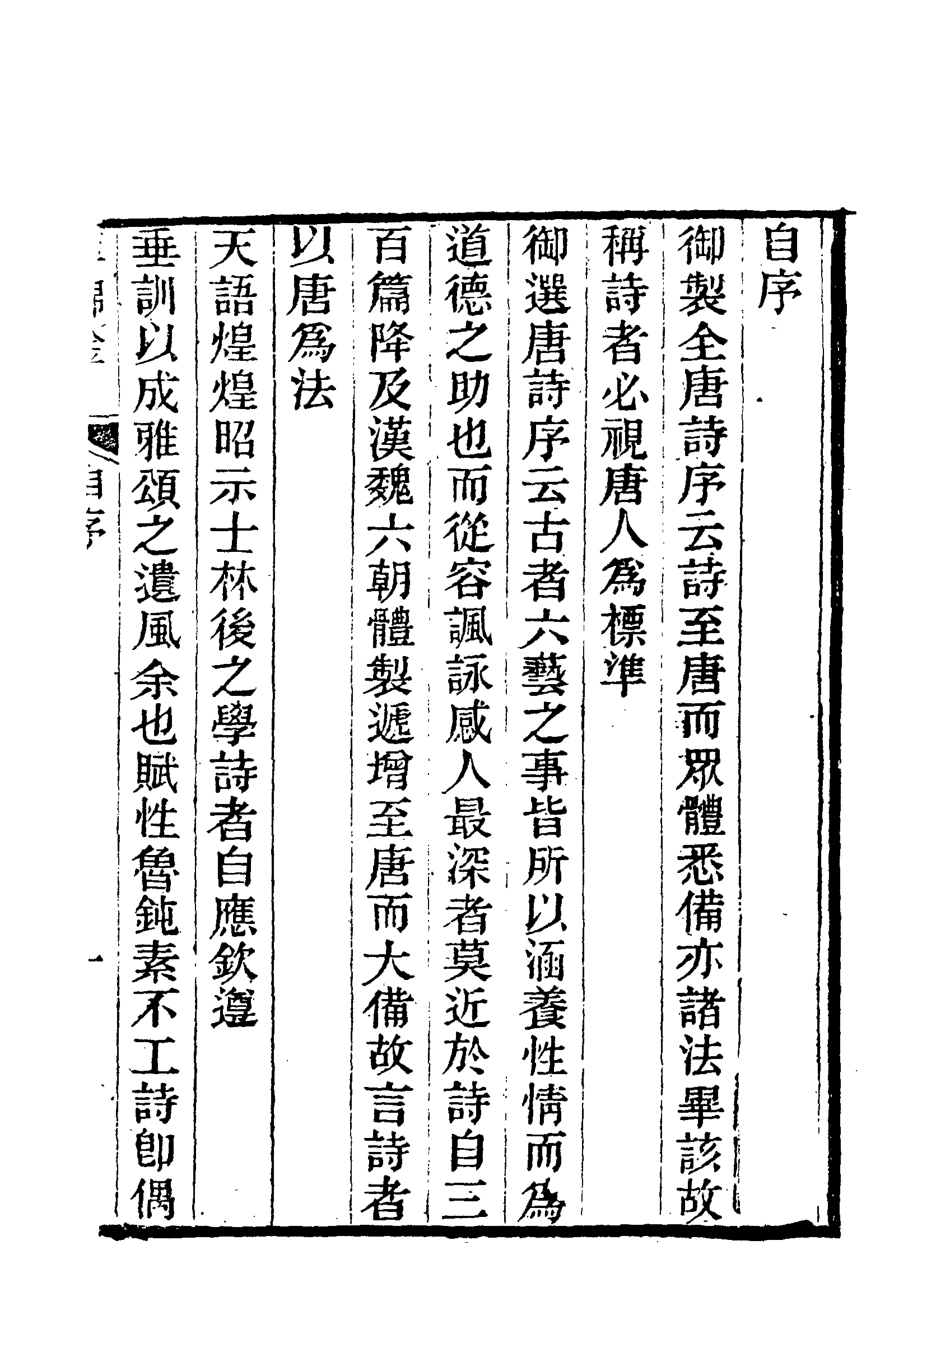 自序
御製全唐詩序云詩至唐而眾體悉備亦諸法畢該故
稱詩者必視唐人爲標準
御選唐詩序云古者六藝之事皆所以涵養性情而爲
道德之助也而從容諷詠感人最深者莫近於詩自三
百篇降及漢魏六朝體製遞增至唐而大備故言詩者
以唐爲法
天語煌煌昭示士林後之學詩者自應欽遵
垂訓以成雅頌之遺風余也賦性魯鈍素不工詩卽偶
自序
一